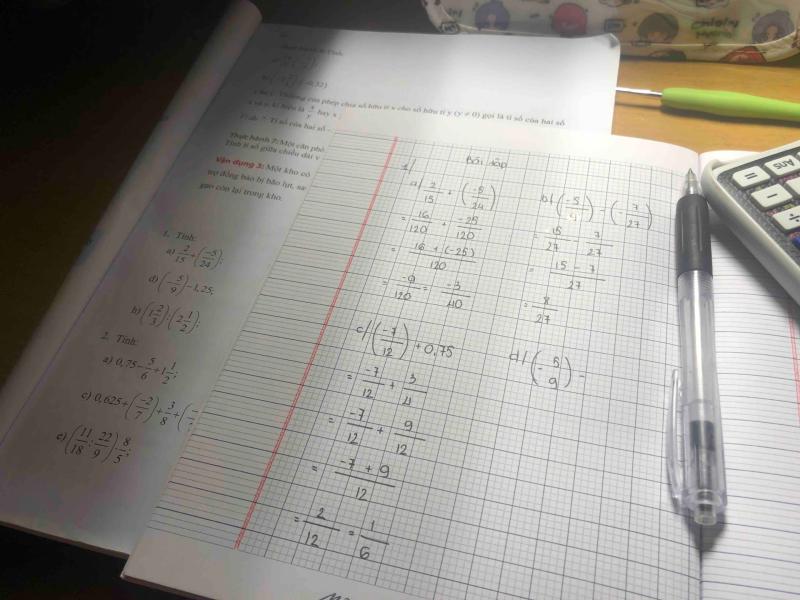 Thực hành 6: Tính:
Chú ý: Thương của phép chia số hữu tỉ x cho số hữu tỉ y (y ≠ 0) gọi là tỉ số của hai số
x và y, kí hiệu là x/y hay x
Tỉ số của hai số
Thực hành 7: Một căn phò
Tính tỉ số giữa chiều dài v
Vận dụng 3: Một kho có
trợ đồng bào bị bão lụt, sa
gạo còn lại trong kho.
1. Tính:
a) 2/15 + (-5/24);
d) (-5/9) - 1,25;
h) (1 2/3) : (2 1/2);
2. Tính:
a) 0,75 - 5/6 + 1 1/2;
c) 0,625 + (-2/7) + 3/8 + (
e) (11/18 : 22/9) . 8/5;
Bài tập
1/
a) 2/15 + (-5/24)
= 16/120 + -25/120
= 16 + (-25)/120
= -9/120 = -3/40
b/ (-5/9) - (-7/27)
= 15/27 - 7/27
= 15 - 7/27
= 8/27
c/ (-7/12) + 0,75
= -7/12 + 3/4
= -7/12 + 9/12
= -7 + 9/12
= 2/12 = 1/6
d/ (-5/9) -